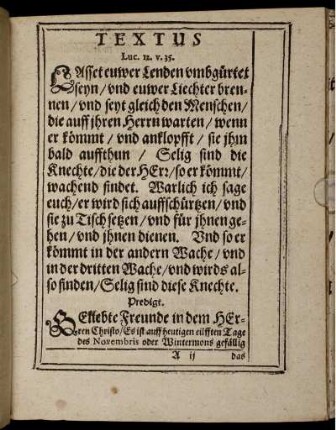 TEXTUS
Luc. 12. v. 35.
LAsset euwer Lenden vmbgürtet
seyn / vnd euwer Liechter bren-
nen / vnd seyt gleich den Menschen /
die auff jhren Herrn warten / wenn
er kömmt / vnd anklopfft / sie jhm
bald auffthun / Selig sind die
Knechte / die der HErr / so er kömmt /
wachend findet. Warlich ich sage
euch / er wird sich auffschürtzen / vnd
sie zu Tisch setzen / vnd für jhnen ge-
hen / vnd jhnen dienen. Vnd so er
kömmt in der andern Wache / vnd
in der dritten Wache / vnd wirds al-
so finden / Selig sind diese Knechte.
Predigt.
GEliebte Freunde in dem HEr-
ren Christo / Es ist auff heutigen eilfften Tage
des Novembris oder Wintermons gefällig
A ij das